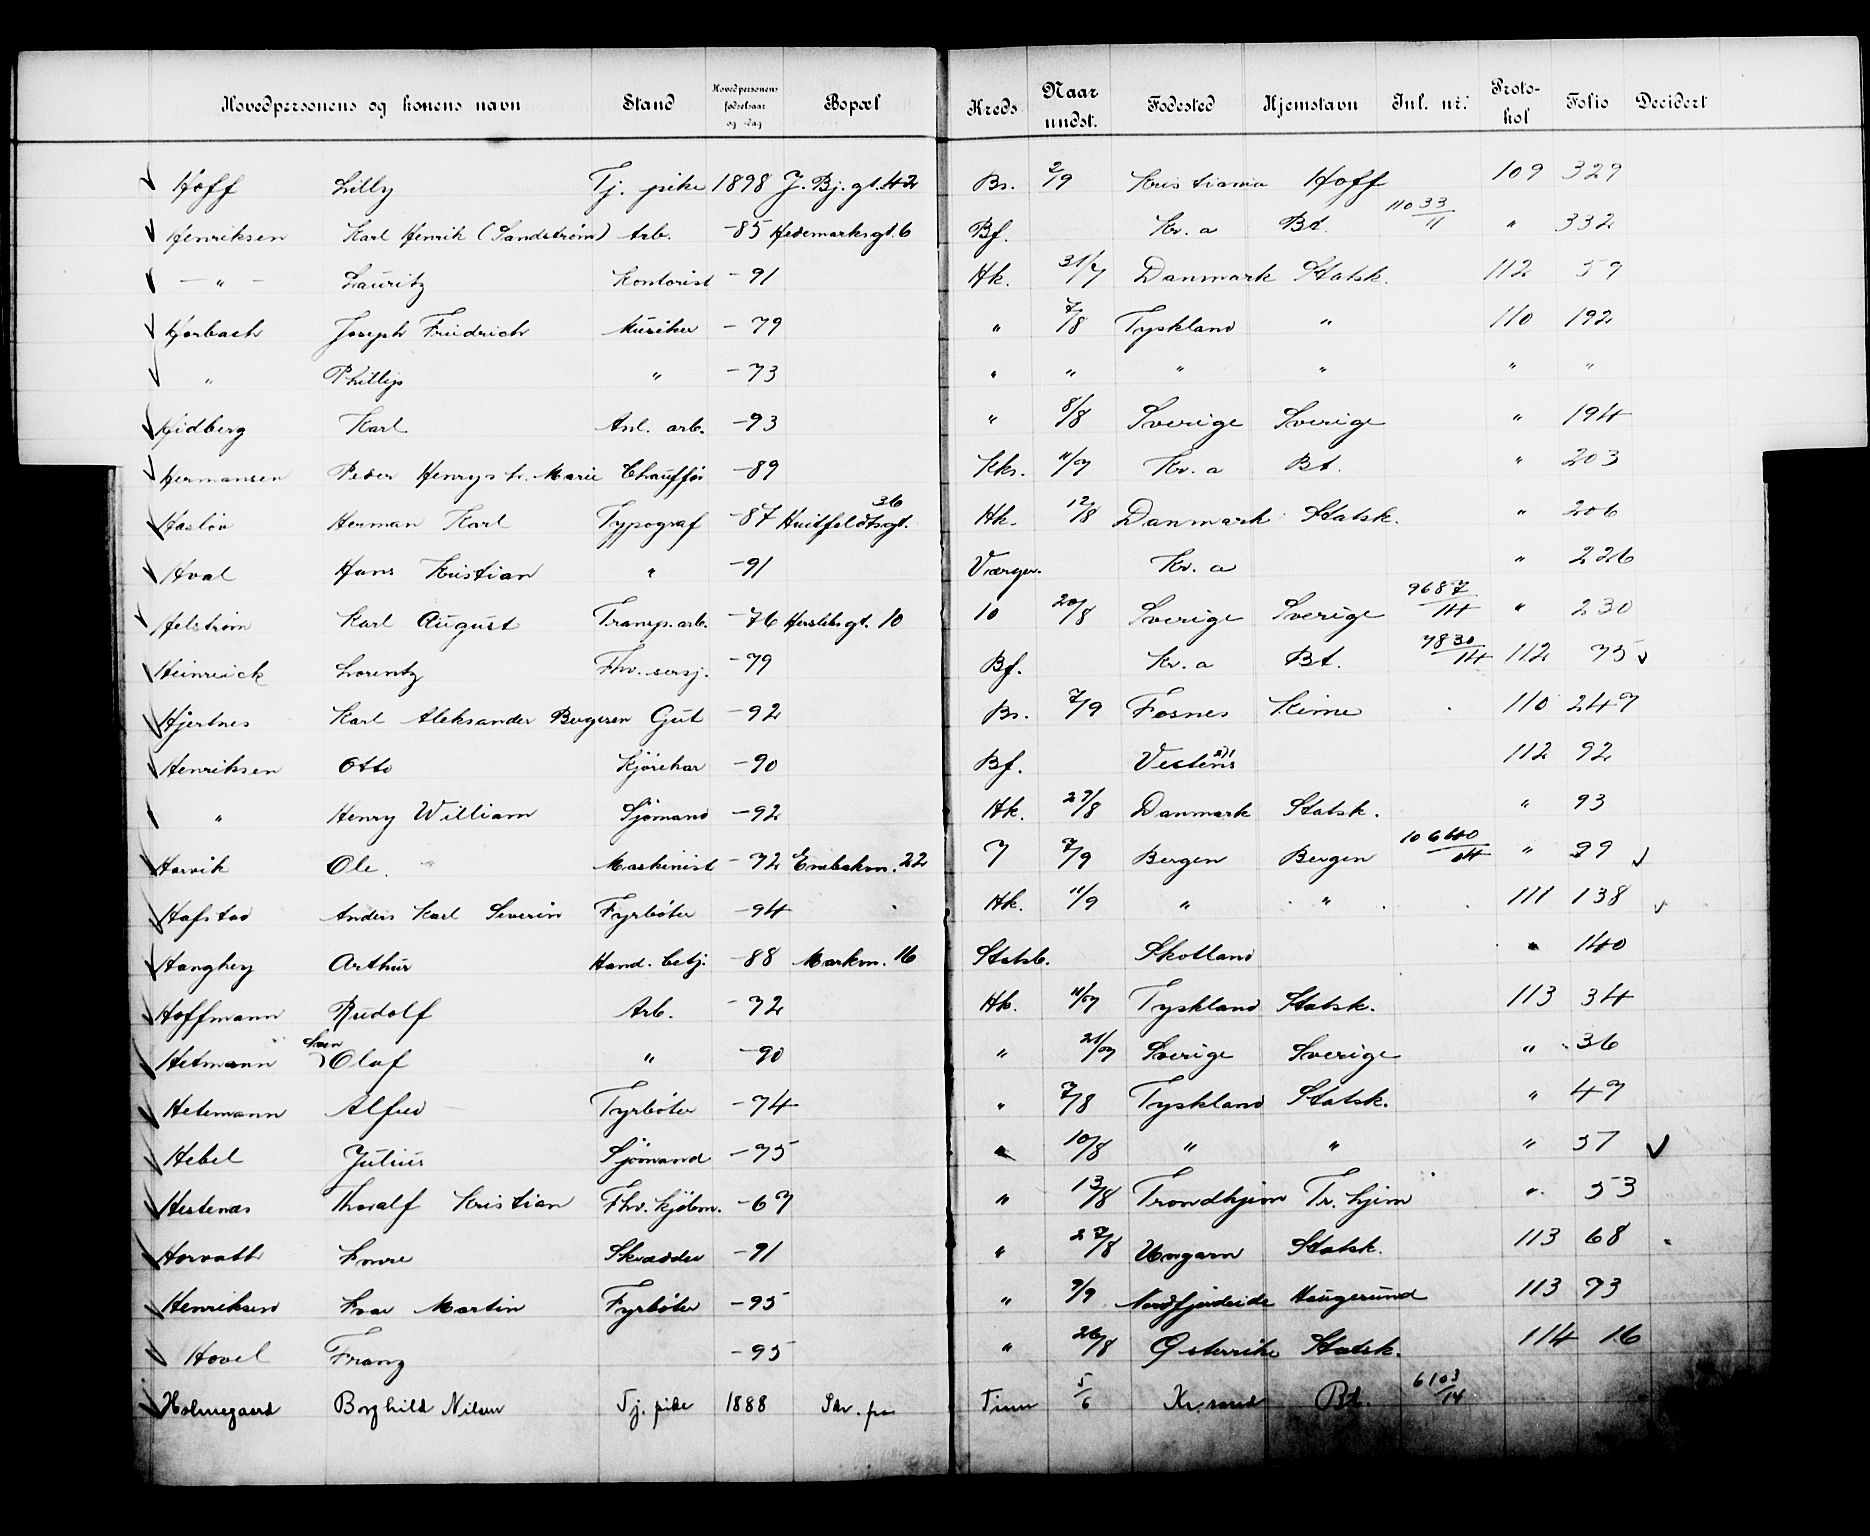 Hovedpersonens og konens navn Stand Hovedpersonens fødselsaar og -dag Bopæl Kreds Naar undst. Fødested Hjemstavn Inl. nr. Proto-kol Folio Decidert
Hoff Lilly Tj. pike 1898 J. Bj. gt. 42 Bs. 2/9 Kristiania Hoff 109 329
Henriksen Karl Henrik (Sandstrøm) Arb. -85 Hedemarksgt. 6 Bf. Kr. a Bt. 11033/11 " 332
- " - Lauritz Kontorist -91 Hk. 31/7 Danmark Statsk. 112 59
Horbach Joseph Friedrich Musiker -79 " 7/8 Tyskland " 110 192
" Phillip " -73 " " " " " "
Hidberg Karl Anl. arb. -93 " 8/8 Sverige Sverige " 194
Hermansen Peder Henrys h. Marie Chauffør -89 Kks. 11/7 Kr. a Bt. " 203
Hasløv Herman Karl Typograf -87 Huitfeldtsgt. 36 Hk. 12/8 Danmark Statsk. " 206
Hval Hans Kristian " -91 Værger. Kr. a " 226
Helstrøm Karl August Transp. arb. -76 Herslebsgt. 10 10 20/8 Sverige Sverige 9687/14 " 230
Heinrick Lorentz Fhv. sersj. -79 Bf. Kr. a Bt. 7830/14 112 75
Hjertnes Karl Aleksander Birgersen Gut -92 Bs. 7/9 Fosnes Kirne 110 247
Henriksen Otto Kjørekar -90 Bf. 112 92
" Henry William Sjømand -92 Hk. 27/8 Danmark Statsk. " 93
Horvik Ole Maskinist -72 Enebakvn. 22 7 7/9 Bergen Bergen 10640/14 " 99
Hafstad Anders Karl Severin Fyrbøter -94 Hk. 11/9 " " 111 138
Hanghey Arthur Hand. betj. -88 Markvn. 16 Statsb. Skotland " 140
Hoffmann Rudolf Arb. -72 Hk. 11/7 Tyskland Statsk. 113 34
Hetmann Sven Olaf " -90 " 21/7 Sverige Sverige " 36
Hetemann Alfred Fyrbøter -74 " 7/8 Tyskland Statsk. " 47
Hebel Julius Sjømand -75 " 10/8 " " " 57
Hestenæs Thoralf Kristian Fhv. kjøbm. -67 " 13/8 Trondhjem Tr. hjem " 53
Horvath Imre Skrædder -91 " 27/8 Ungarn Statsk. 113 68
Henriksen Ivar Martin Fyrbøter -95 " 9/9 Nordfjordeide Haugesund 113 73
Hovel Franz -95 " 26/8 Østerrike Statsk. 114 16
Holmegaard Borghild Nilsen Tj. pike 1888 Tinn 5/6 Kr. sand Bt. 6103/14